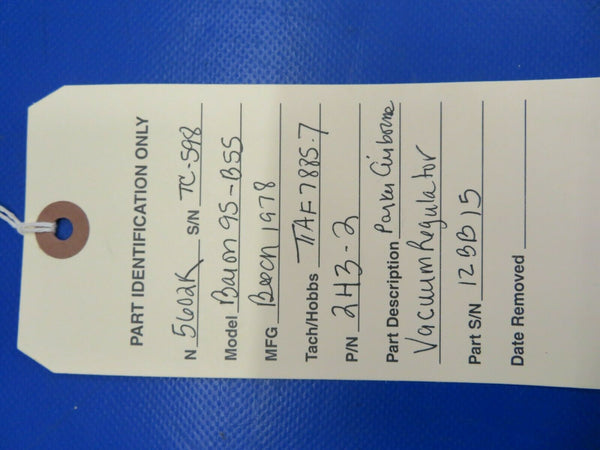 PART IDENTIFICATION ONLY
N 5602K S/N TC-598
Model Baron 95-B55
MFG Beech 1978
Tach/Hobbs TTAF 7885.7
P/N 2H3-2
Part Description Parker Airborne
Vacuum Regulator
Part S/N 12BB15
Date Removed